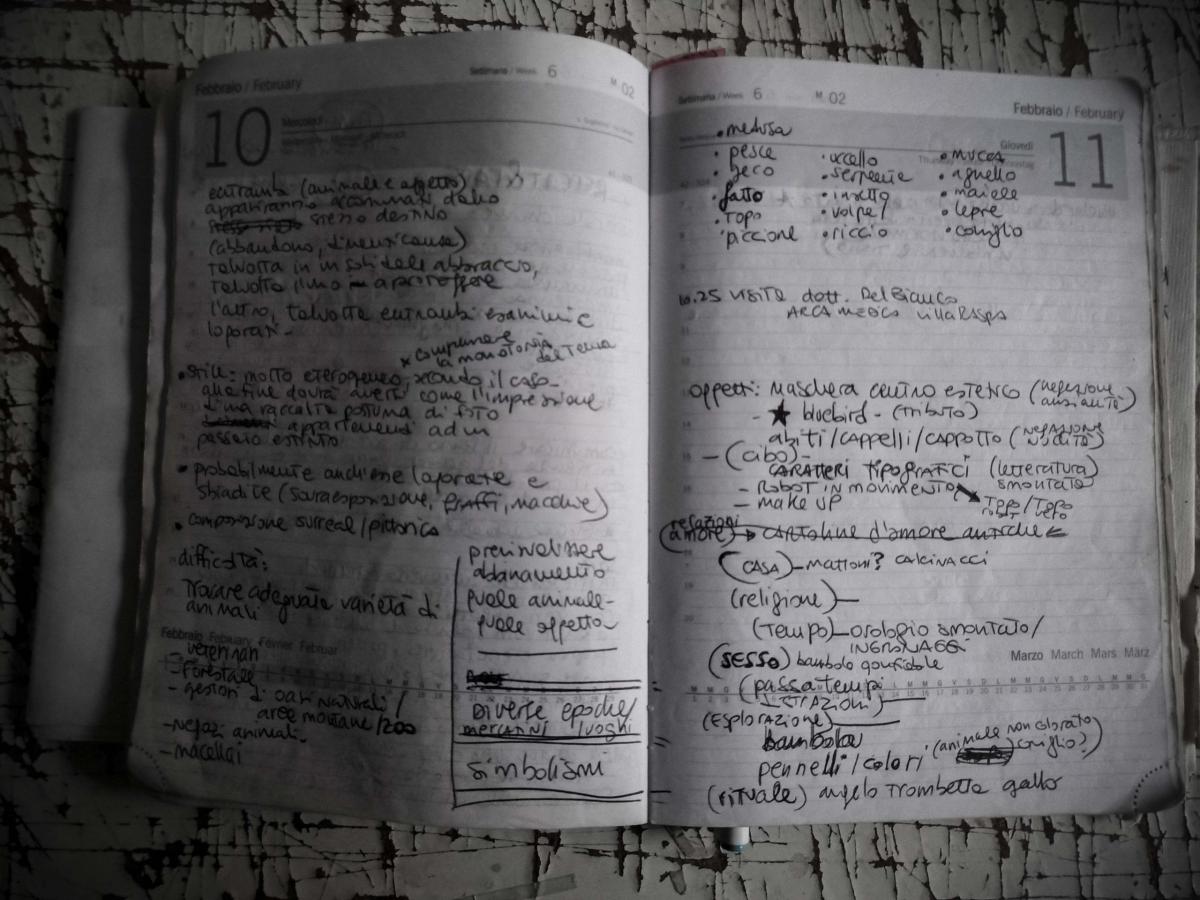 Febbraio / February
Settimana / Week 6
M 02
10
Mercoledì
entrambi (animale e oggetto)
appariranno accomunati dallo
stesso destino
(abbandono, dimenticanza)
talvolta in un solidale abbraccio,
talvolta l'uno a proteggere
l'altro, talvolta entrambi esanimi e
logorati-
x comprimere
la monotonia
del tema
• stile: molto eterogeneo, secondo il caso-
alla fine dovrà aversi come l'impressione
d'una raccolta postuma di foto
appartenenti ad un
passato estinto
• probabilmente anch'esse logorate e
sbiadite (sovraesposizione, graffi, macchine)
• composizione surreal/pittorica
difficoltà:
trovare adeguata varietà di
animali
Febbraio February Février Februar
- veterinari
- forestale
- gestori di oasi naturali /
aree montane / zoo
- negozi animali
- macellai
previsualizzare
abbinamento
quale animale-
quale oggetto-
Diverse epoche/
mercatini / luoghi
simbolismi
Settimana / Week 6
M 02
Febbraio / February
Giovedì
11
• medusa
• pesce
• geco
• gatto
• topo
• piccione
• uccello
• serpente
• insetto
• volpe/
• riccio
• mucca
• agnello
• maiale
• lepre
• coniglio
10.25 visita dott. Del Bianco
ARCA MEDICA VILLARASPA
oggetti: maschera centro estetico (negazione
anzianità)
- ★ bluebird - (tributo)
abiti/cappelli/cappotto (negazione
nudità)
- (cibo)-
CARATTERI TIPOGRAFICI (letteratura
smontata)
- ROBOT IN MOVIMENTO
Topo/Topo
vero
- make up
relazioni
(amore) → cartoline d'amore antiche ←
(CASA)-mattoni? calcinacci
(religione)-
(Tempo)-orologio smontato/
INGRANAGGI
Marzo March Mars März
(SESSO) bambola gonfiabile
(passatempi
ISTRAZIONI)-
(ESPLORAZIONE)-
bambola
pennelli/colori (animale non colorato
coniglio?)
(rituale) angelo trombetta gallo